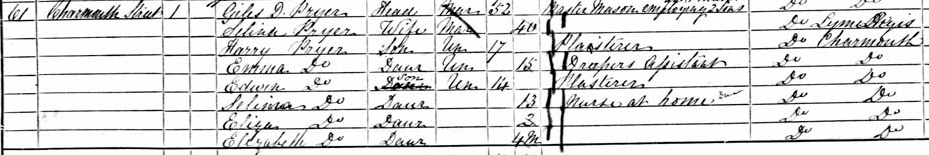 61 Charmouth Street 1 Giles D. Pryer Head Mar 52 Master Mason employing Do Do
Selina Pryer Wife Mar 40 Do Lyme Regis
Harry Pryer Son Un 17 Plaisterer Do Charmouth
Emma Do Daur Un 15 Drapers Assistant Do Do
Edwin Do Son Un 14 Plasterer Do Do
Selina Do Daur 13 Nurse at home Do Do
Eliza Do Daur 2 Do Do
Elizabeth Do Daur 4m Do Do